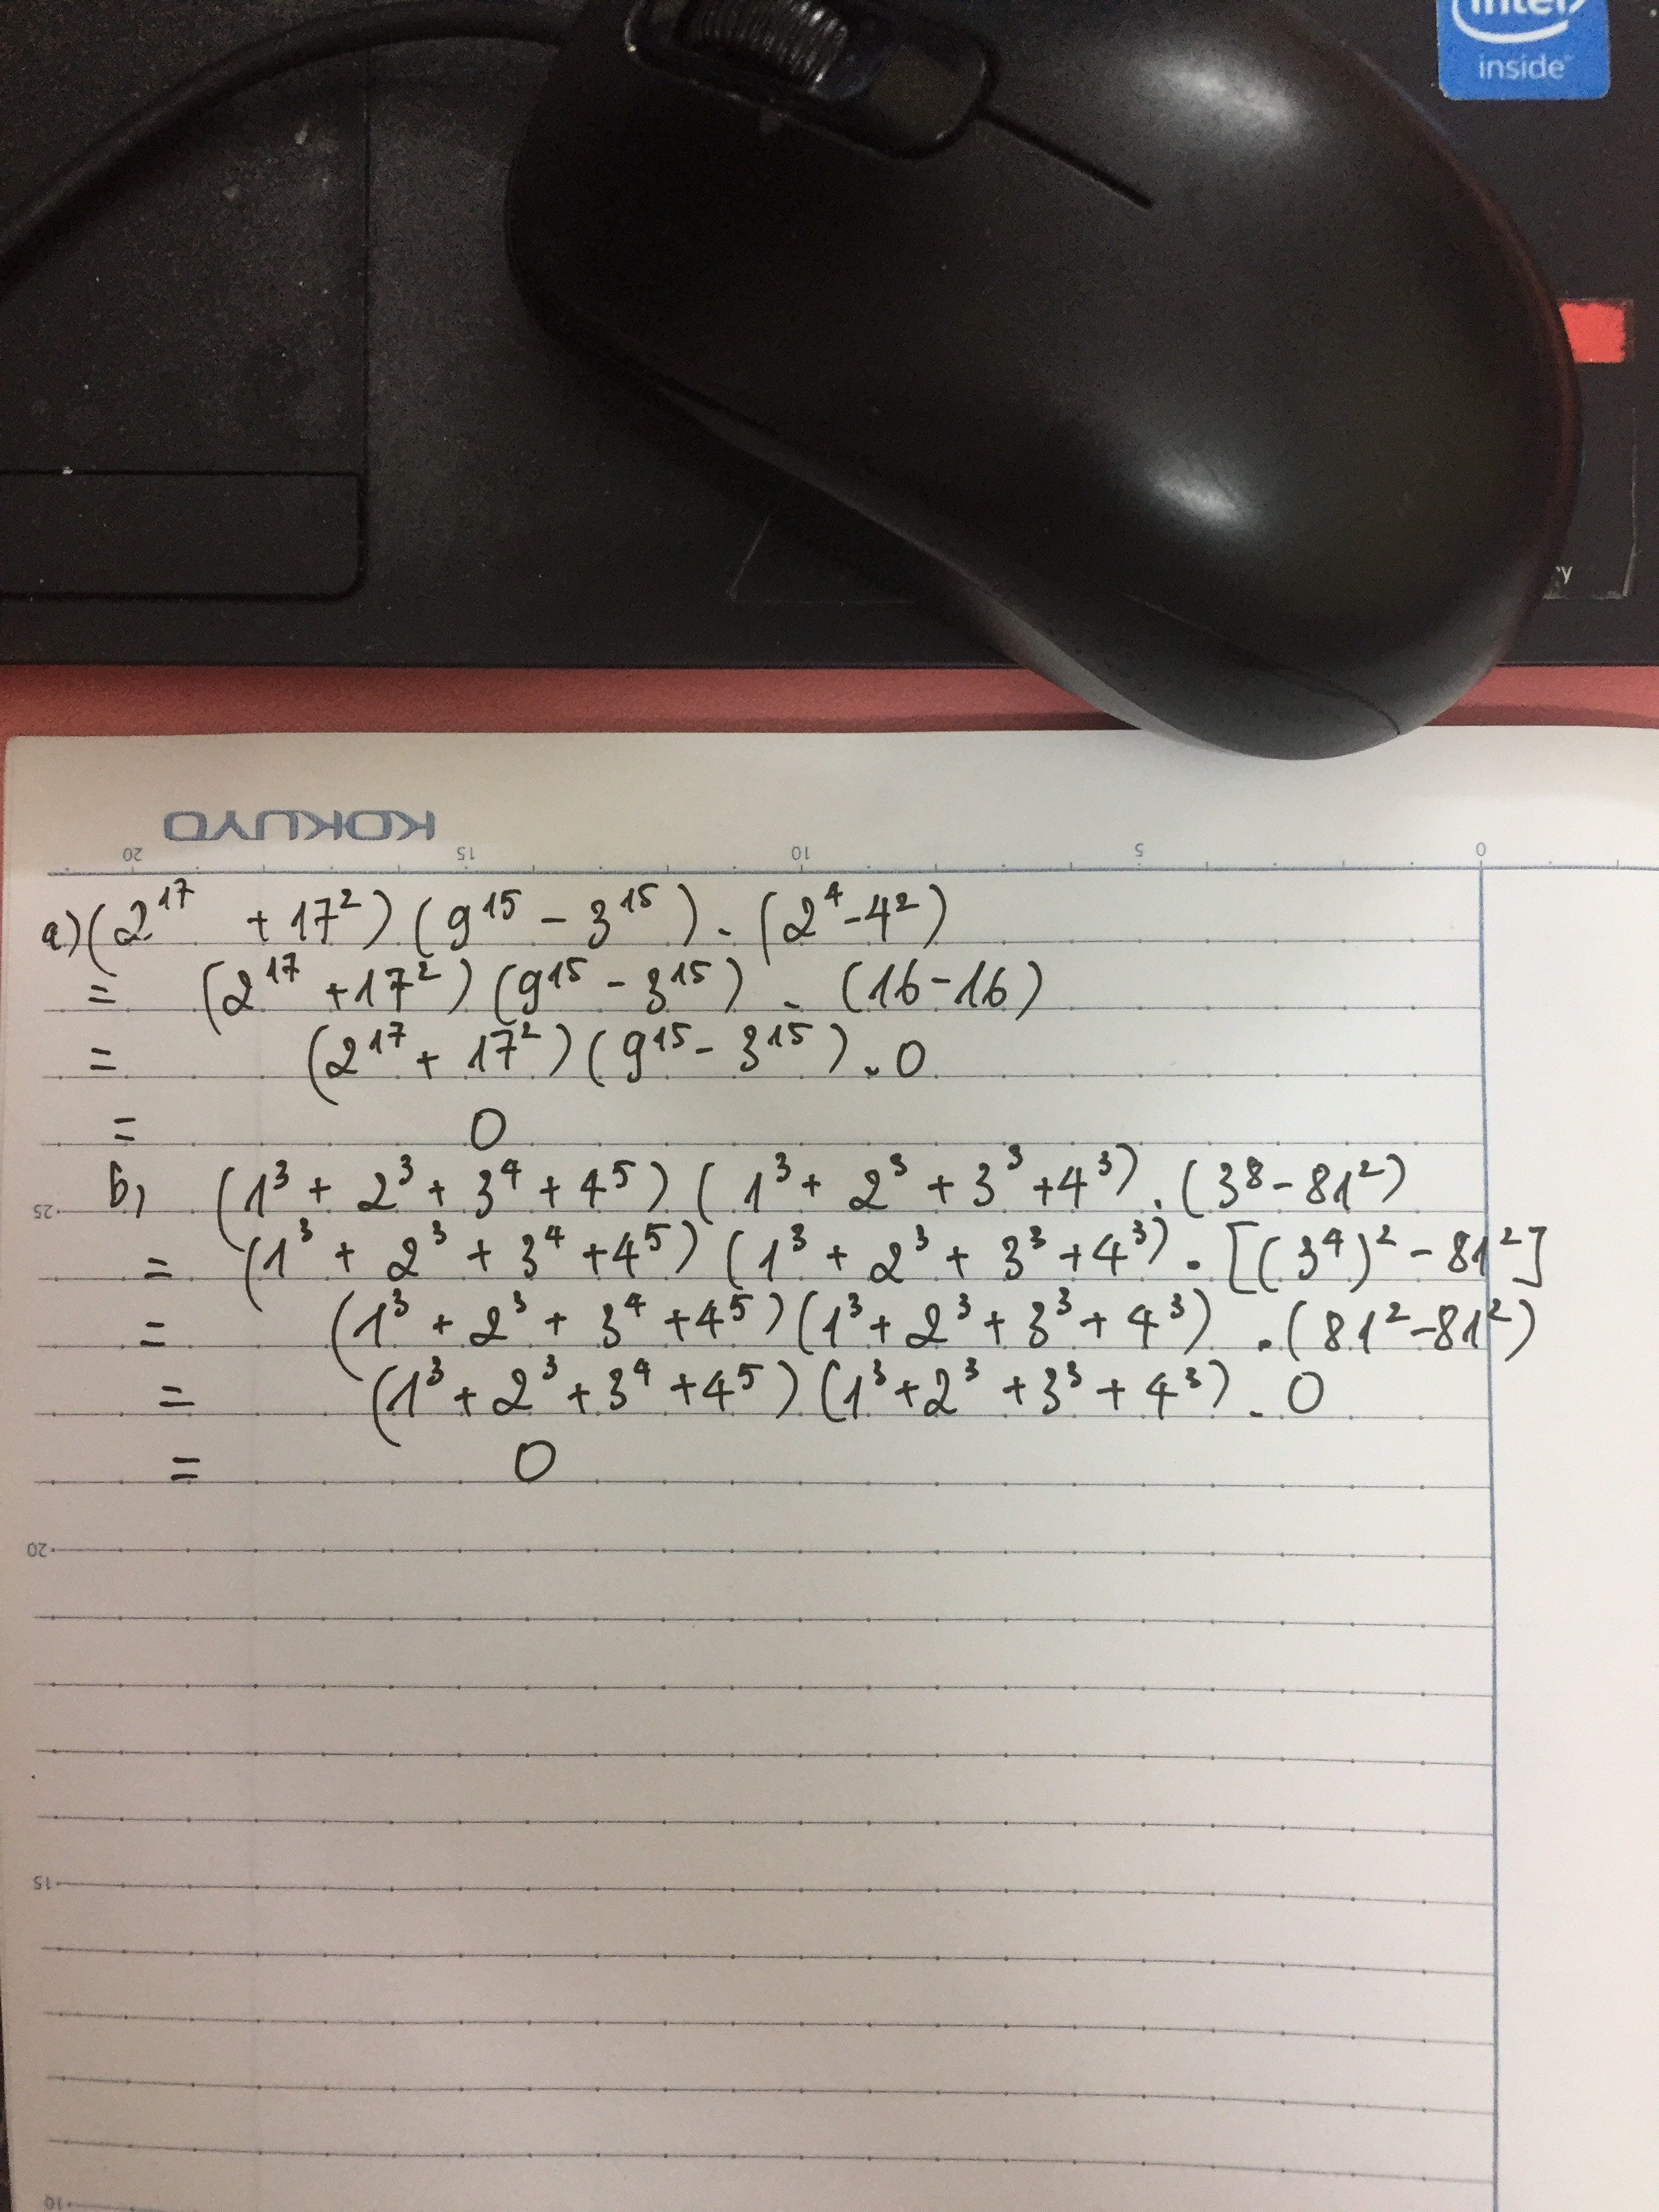 intel
inside
ry
KOKUYO
20 15 10 5 0
a) (2¹⁷ + 17²) (9¹⁵ - 3¹⁵) . (2⁴ - 4²)
= (2¹⁷ + 17²) (9¹⁵ - 3¹⁵) . (16 - 16)
= (2¹⁷ + 17²) (9¹⁵ - 3¹⁵) . 0
= 0
b) (1³ + 2³ + 3⁴ + 4⁵) (1³ + 2³ + 3³ + 4³) . (3⁸ - 81²)
25
= (1³ + 2³ + 3⁴ + 4⁵) (1³ + 2³ + 3³ + 4³) . [(3⁴)² - 81²]
= (1³ + 2³ + 3⁴ + 4⁵) (1³ + 2³ + 3³ + 4³) . (81² - 81²)
= (1³ + 2³ + 3⁴ + 4⁵) (1³ + 2³ + 3³ + 4³) . 0
= 0
20
15
10